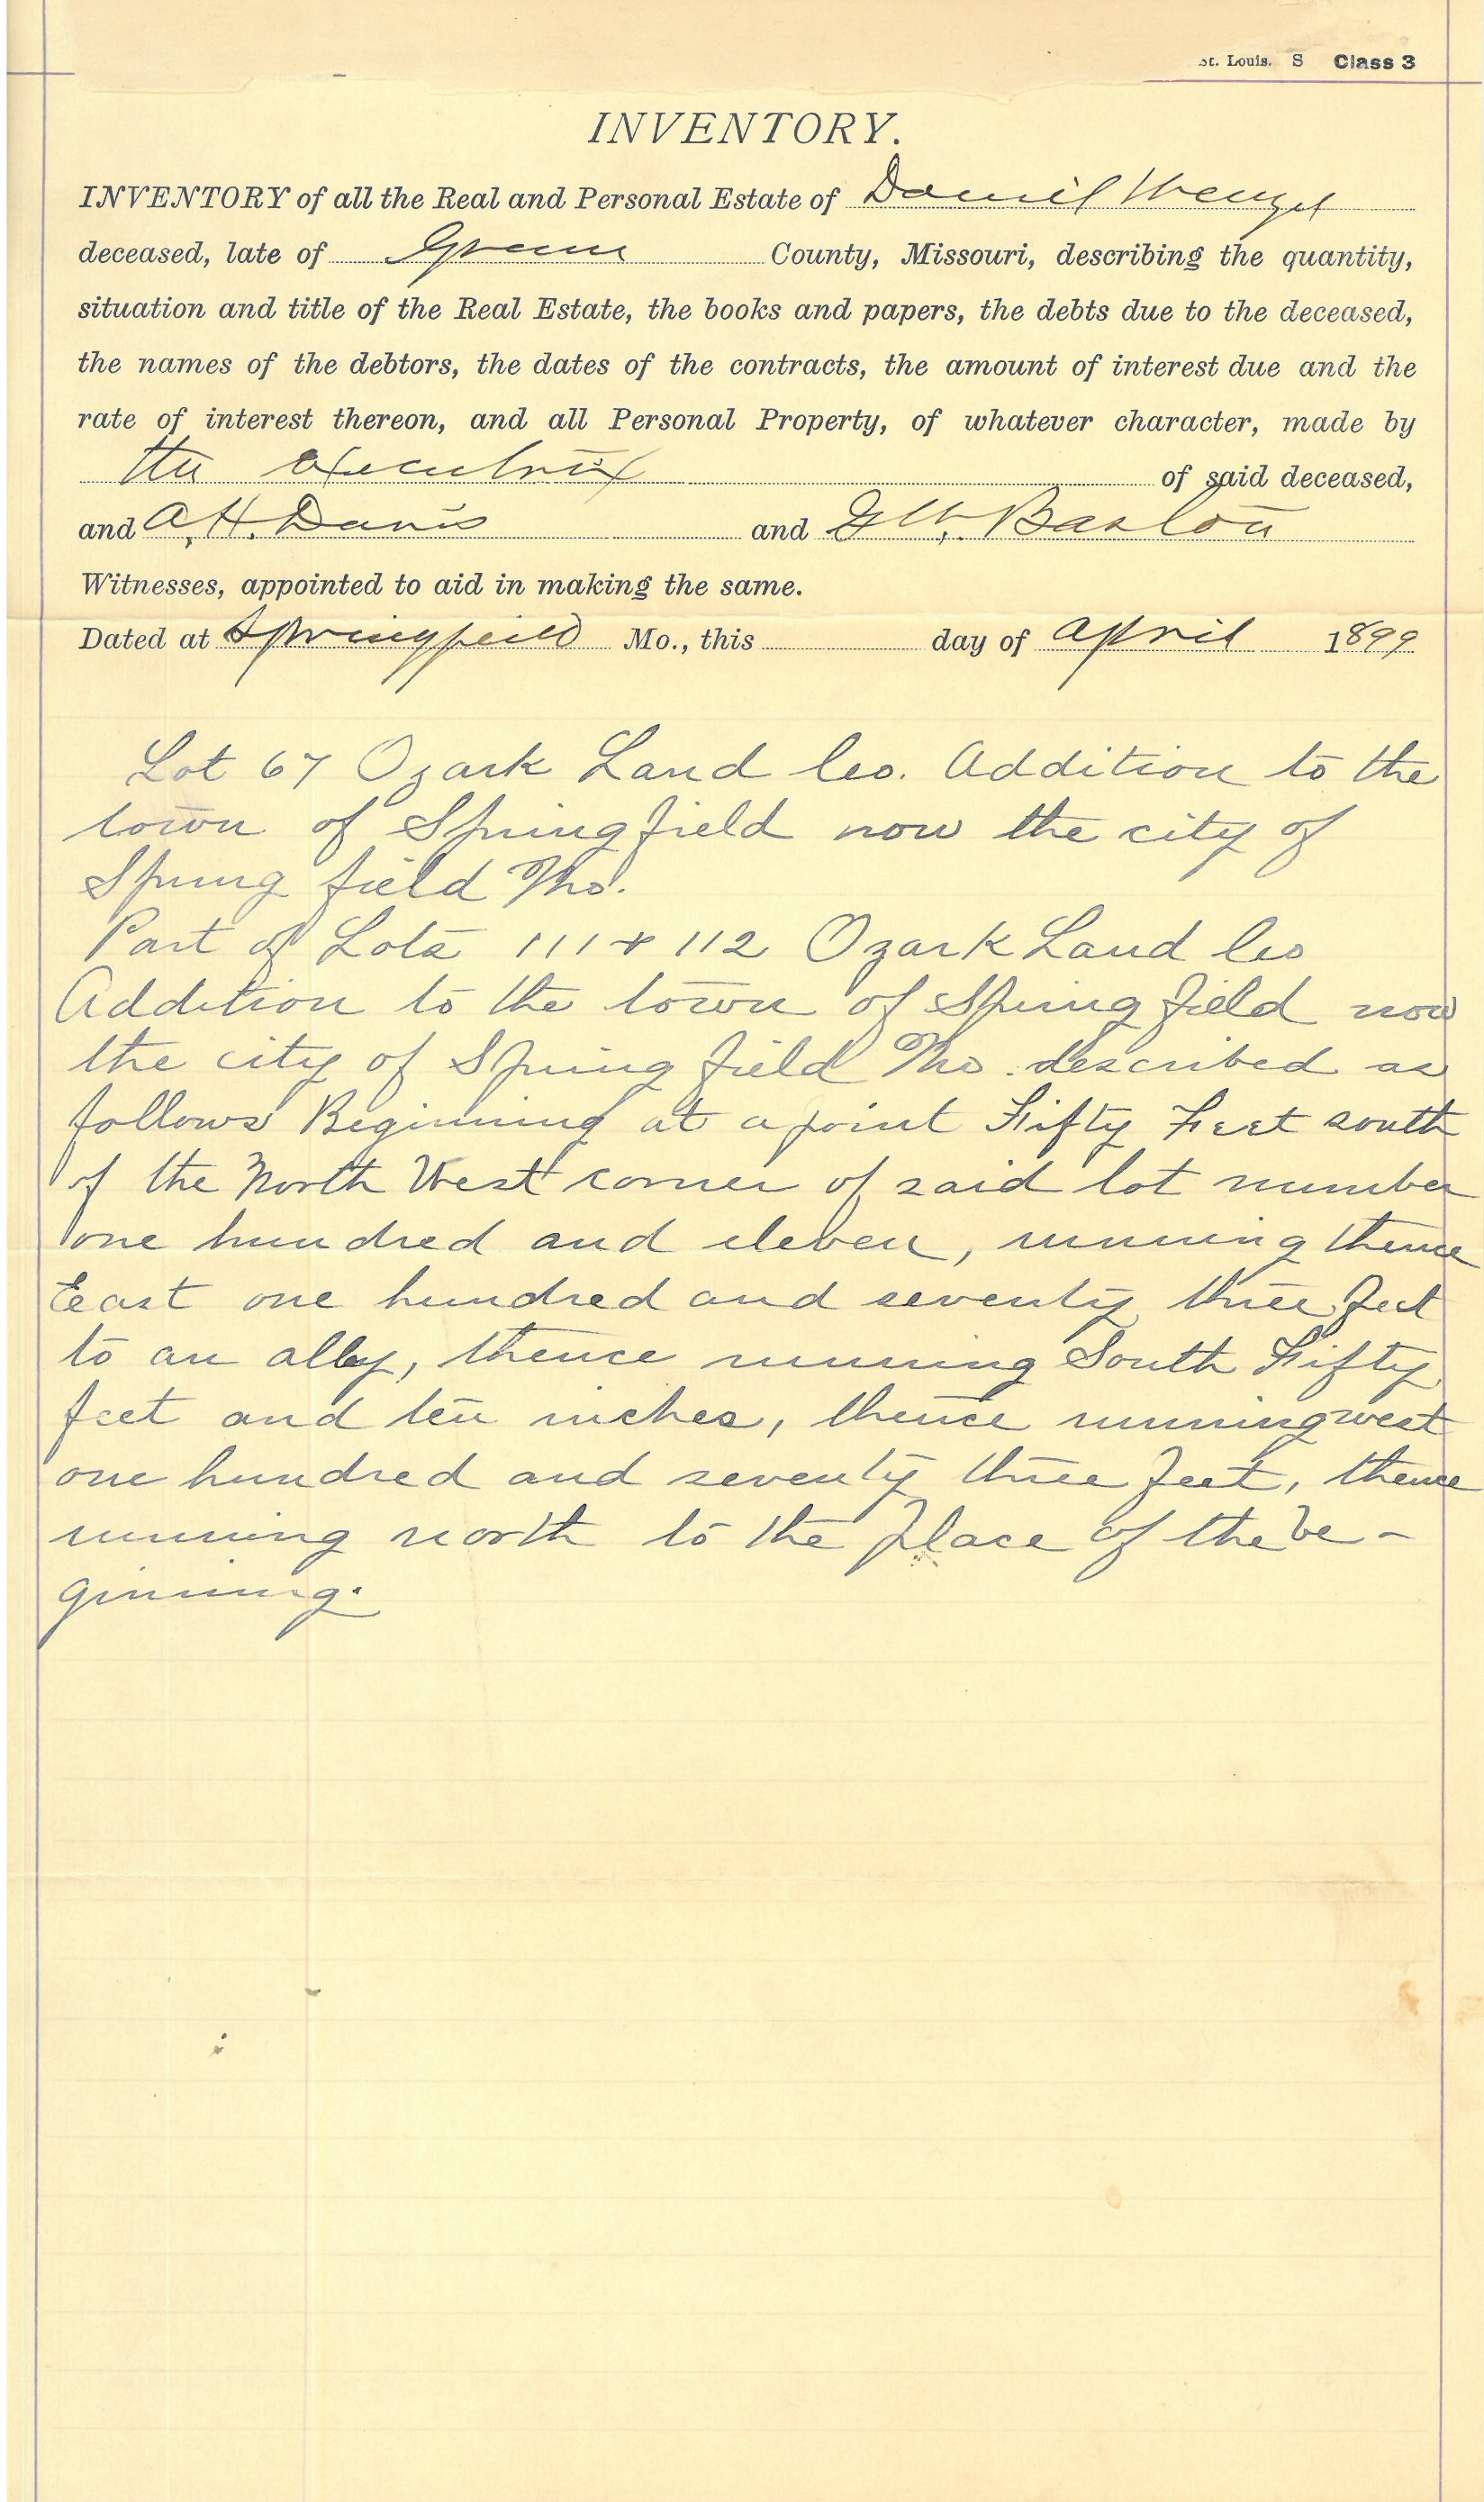 St. Louis. S Class 3
INVENTORY.
INVENTORY of all the Real and Personal Estate of Daniel Wenzel
deceased, late of Greene County, Missouri, describing the quantity,
situation and title of the Real Estate, the books and papers, the debts due to the deceased,
the names of the debtors, the dates of the contracts, the amount of interest due and the
rate of interest thereon, and all Personal Property, of whatever character, made by
the executrix of said deceased,
and A. H. Davis and
Witnesses, appointed to aid in making the same.
Dated at Springfield Mo., this day of April 1899
Lot 67 Ozark Land Co. Addition to the
town of Springfield now the city of
Spring field Mo.
Part of Lots 111 & 112 Ozark Land Co
Addition to the town of Spring field now
the city of Spring field Mo. described as
follows Beginning at a point Fifty Feet south
of the North West corner of said lot number
one hundred and eleven, running thence
East one hundred and seventy three feet
to an alley, thence running South Fifty
feet and ten inches, thence running west
one hundred and seventy three feet, thence
running north to the place of the be-
ginning.